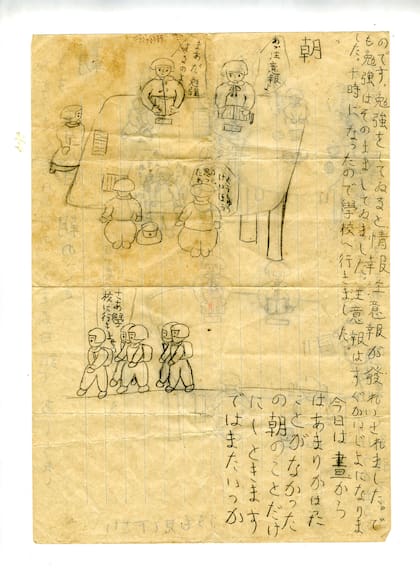 のです。勉強をしてゐると情報、注意報が發れいされました。で
も勉強はそのまましてゐました。注意報はすぐかいじよになりま
した。十時になつたので學校へ行きました。
朝
注意報
さあ學
校に行き
今日は晝から
はあまりかはた
ことがなかった
の朝のことだけ
にしときます
ではまたいつか